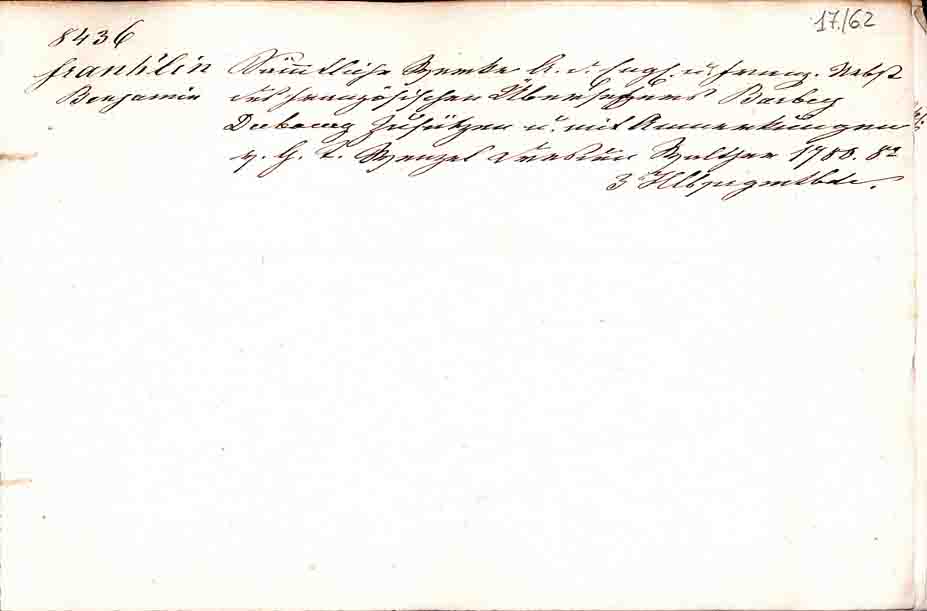 17./62
8436
Franklin Sämmtliche Werke A. d. Engl. u. Franz. Nebst
Benjamin des französischen Übersetzers Barbey
Dubourg Zusätzen u. mit Anmerkungen
v. G. T. Wenzel Dresden Walther 1780. 8°
3 Hlbpgmtbde.